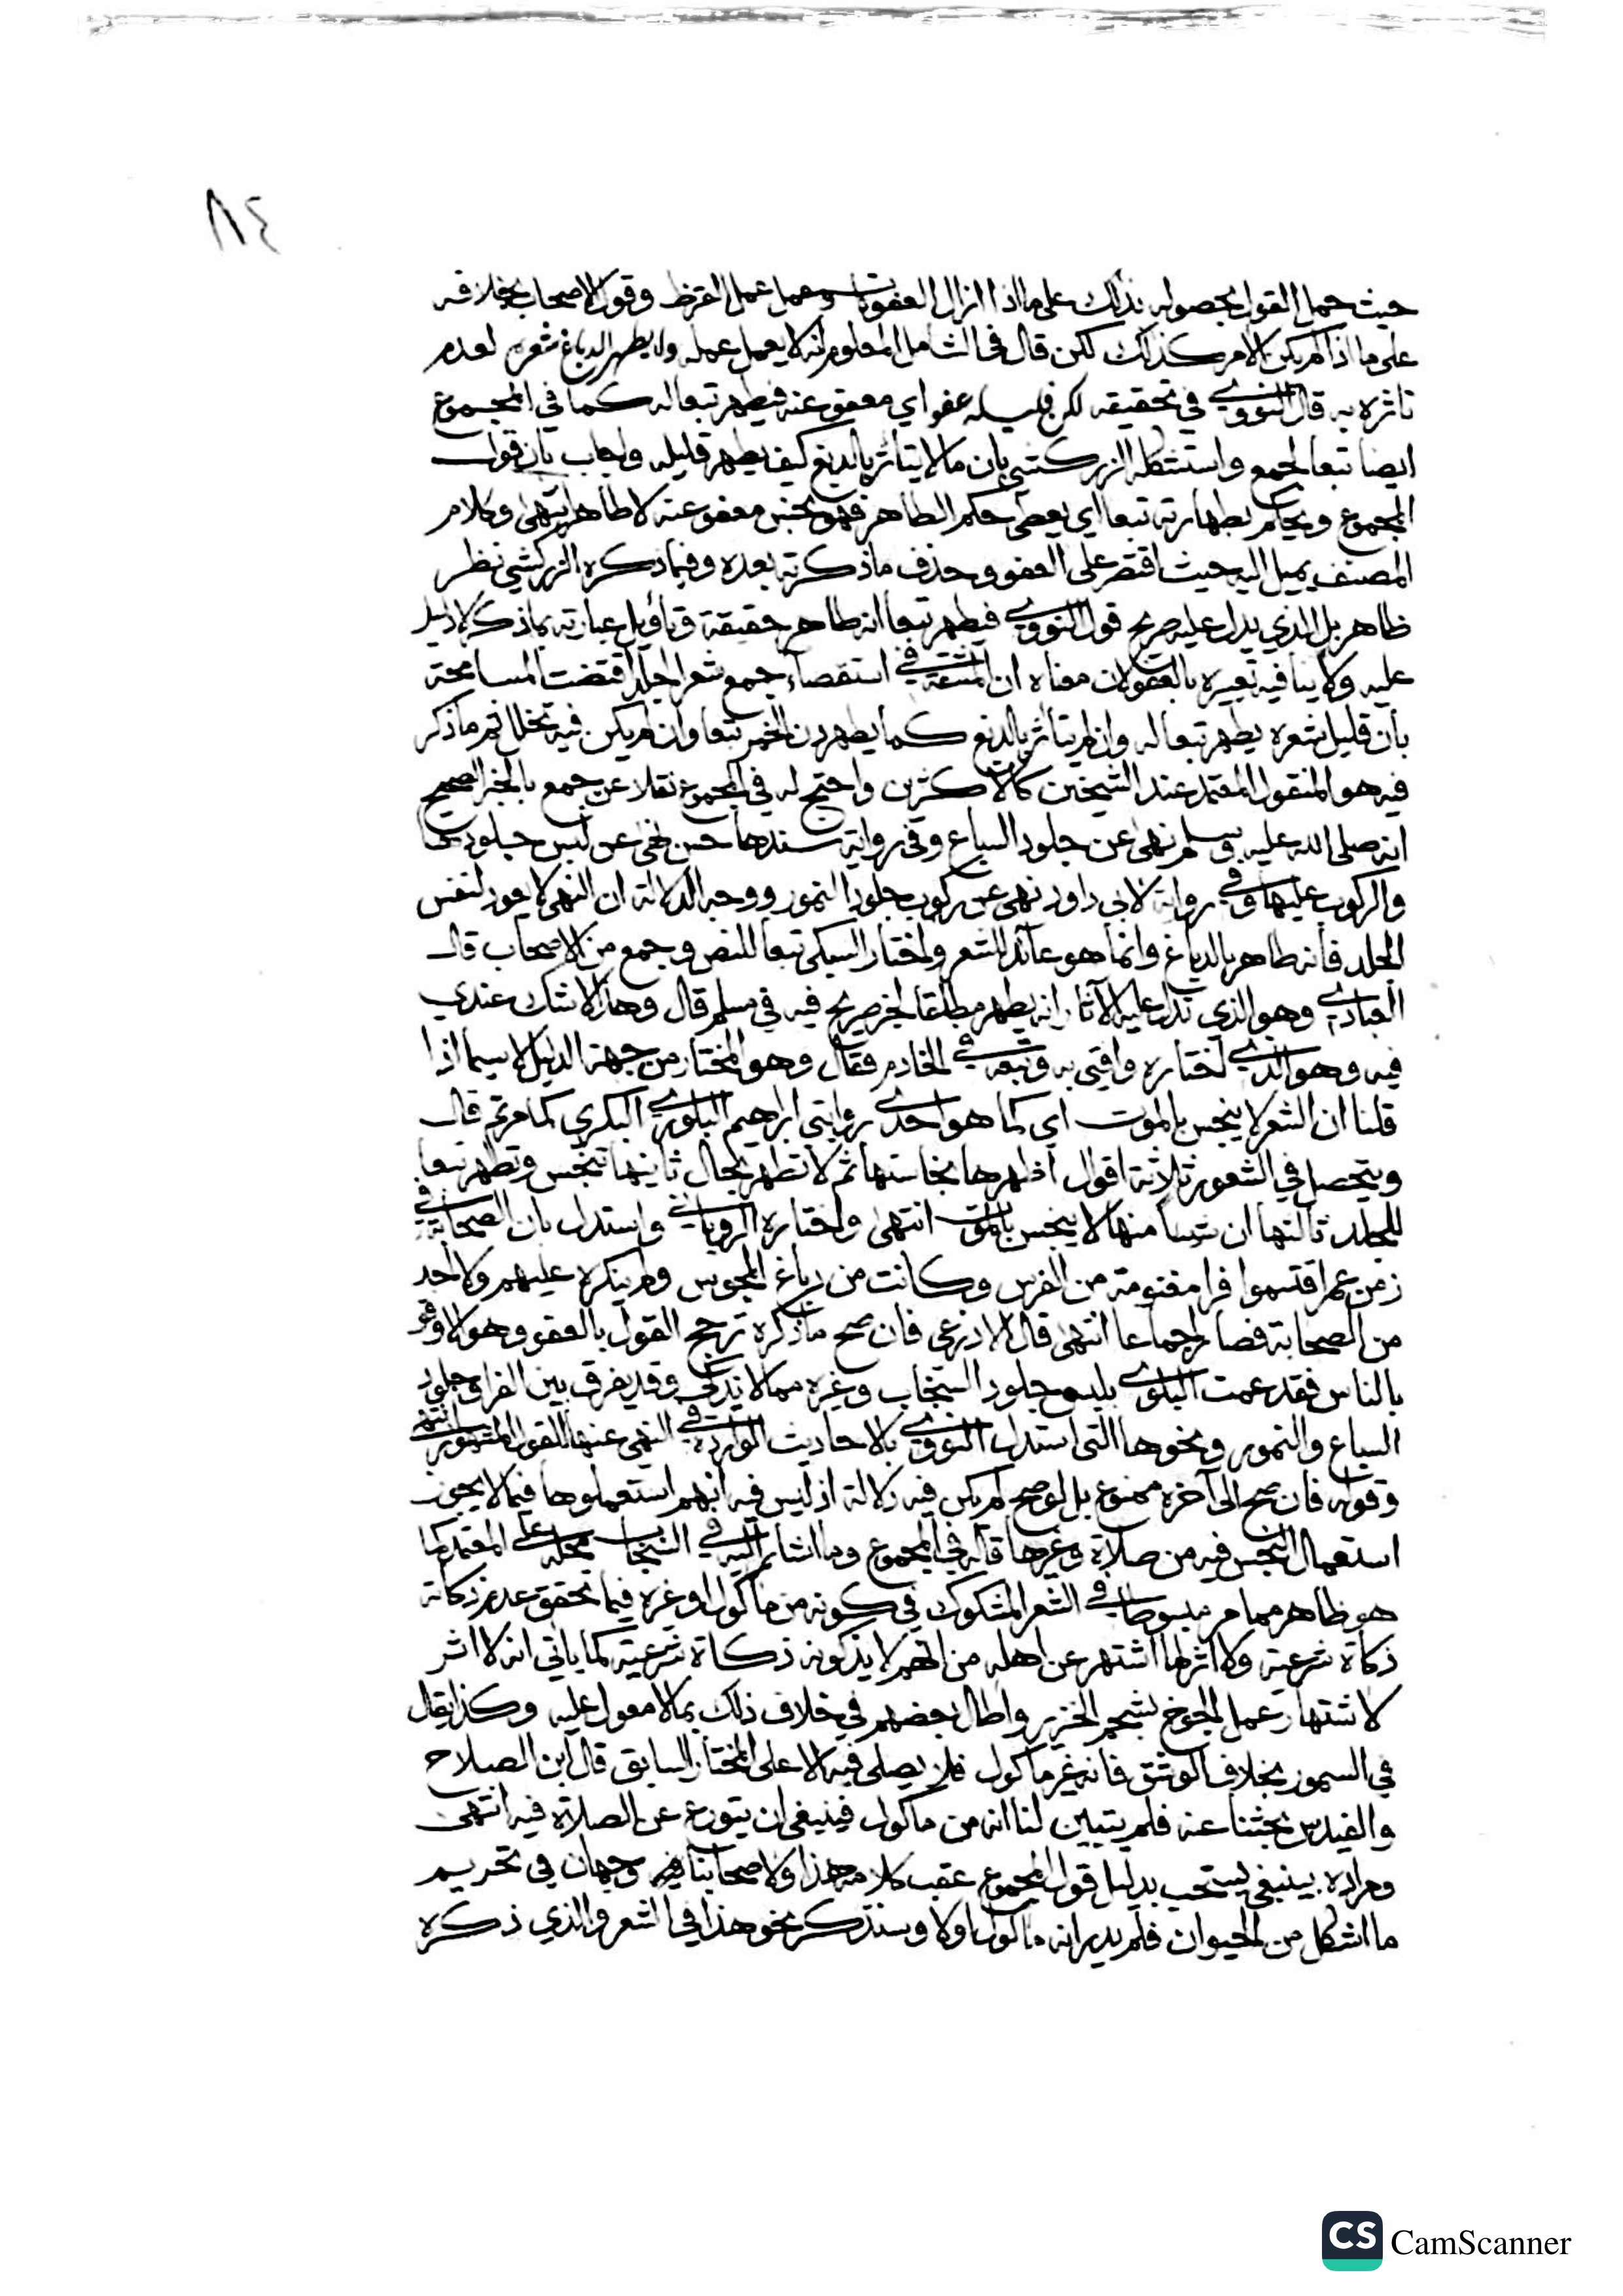 ٨٤
حيث حمل القول بحصوله بذلك على ما اذا ازال العفونات وعمل عمل القرظ وقول الاصحاب بخلافه
على ما اذا لم يكن الامر كذلك لكن قال في الشامل المعلوم انه لا يعمل عمله ولا يطهر الدباغ شعره لعدم
تاثره به قال النووي في تحقيقه لكن قليله عفو اي معفو عنه فيطهر تبعا له كما في المجموع
ايضا تبعا لجمع واستشكله الزركشي بان ما لا يتاثر بالدبغ كيف يطهر قليله واجاب بان قول
المجموع ويحكم بطهارته تبعا اي يعطى حكم الطاهر فهو نجس معفو عنه لا طاهر انتهى وكلام
المصنف يميل اليه حيث اقتصر على العفو وحذف ما ذكرته بعده وفيما ذكره الزركشي نظر
ظاهر بل الذي يدل عليه صريح قول النووي فيطهر تبعا انه طاهر حقيقة وتأويل عبارته بما ذكر لا دليل
عليه ولا ينافيه تعبيره بالعفو لان معناه ان المشقة في استقصاء جمع شعر الجلد اقتضت المسامحة
بأن قليل شعره يطهر تبعا له وان لم يتاثر بالدبغ كما يطهر دن الخمر تبعا وان لم يكن فيه تخلل ثم ما ذكر
فيه هو المنقول المعتمد عند الشيخين كالاكثرين واحتج له في المجموع نقلا عن جمع بالخبر الصحيح
انه صلى الله عليه وسلم نهى عن جلود السباع وفي رواية سندها حسن نهى عن لبس جلودها
والركوب عليها وفي رواية لابي داود نهى عن ركوب جلود النمور ووجه الدلالة ان النهى لا يعود لنفس
الجلد فأنه طاهر بالدباغ وانما هو عائد للشعر واختار السبكي تبعا للنص وجمع من الاصحاب قال
العبادي وهو الذي تدل عليه الآثار انه يطهر مطلقا لخبر صريح فيه في مسلم قال وهذا لا شك عندي
فيه وهو الذي اختاره وافتي به وتبعه في الخادم فقال وهو المختار من جهة الدليل لا سيما اذا
قلنا ان الشعر لا ينجس بالموت اي كما هو احدى روايتي ابراهيم البلوي البكري كما مر ثم قال
ويتحصل في الشعور ثلاثة اقوال اظهرها نجاستها ثم لا تطهر بحال ثانيها تنجس وتطهر تبعا
للجلد ثالثها ان شيئا منها لا ينجس بالموت انتهى واختاره الروياني واستدل بان الصحابة في
زمن عمر اقتسموا فرا مغنومة من الفرس وكانت من دباغ المجوس ولم ينكره عليهم ولا احد
من الصحابة فصار اجماعا انتهى قال الاذرعى فان صح ما ذكره ترجح القول بالعفو وهو الاوفق
بالناس فقد عمت البلوى بلبس جلود السنجاب وغيره مما لا يذكى وقد يفرق بين الفرا وجلود
السباع والنمور ونحوها التي استدل النووي بالاحاديث الواردة في النهى عنها للقول المشهور انتهى
وقوله فان صح الى آخره ممنوع بل لو صح لم يكن فيه دلالة اذ ليس فيه انهم استعملوها فيما لا يجوز
استعمال النجس فيه من صلاة وغيرها قاله في المجموع وما اشار اليه في السنجاب محله على المعتمد كما
هو ظاهر مما مر مبسوطا في الشعر المشكوك في كونه من مأكول او غيره فيما تحقق عدم ذكاته
ذكاة شرعية ولا اثر لما اشتهر عن اهله من انهم لا يذكونه ذكاة شرعية كما ياتي انه لا اثر
لاشتهار عمل الجوخ بشحم الخنزير واطال بعضهم في خلاف ذلك بما لا معول عليه وكذا يقال
في السمور بخلاف الوشق فانه غير ماكول فلا يصلى فيه الا على المختار السابق قال ابن الصلاح
والفندس بحثنا عنه فلم يتبين لنا انه من ماكول فينبغي ان يتورع عن الصلاة فيه انتهى
ومراده بينبغي يستحب بدليل قول المجموع عقب كلامه هذا ولاصحابنا فيه وجهان في تحريم
ما اشكل من الحيوان فلم يدر انه ماكول اولا وسنذكر نحو هذا في الشعر والذي ذكره
CS CamScanner